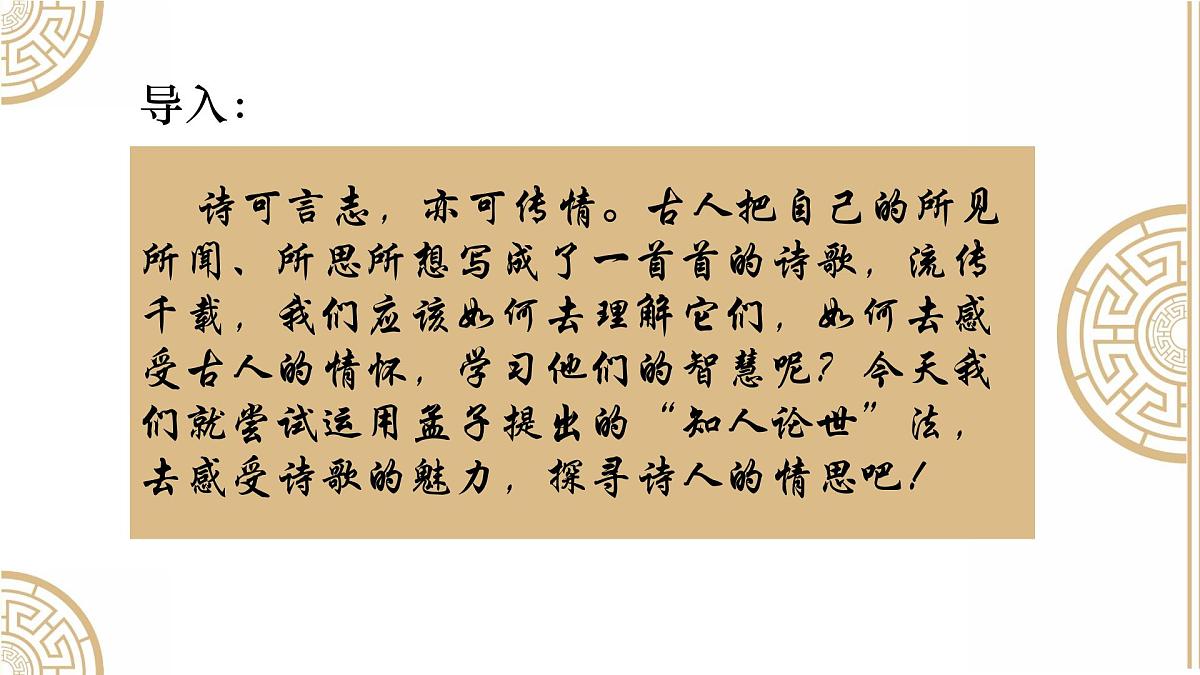 导入：
诗可言志，亦可传情。古人把自己的所见
所闻、所思所想写成了一首首的诗歌，流传
千载，我们应该如何去理解它们，如何去感
受古人的情怀，学习他们的智慧呢？今天我
们就尝试运用孟子提出的“知人论世”法，
去感受诗歌的魅力，探寻诗人的情思吧！